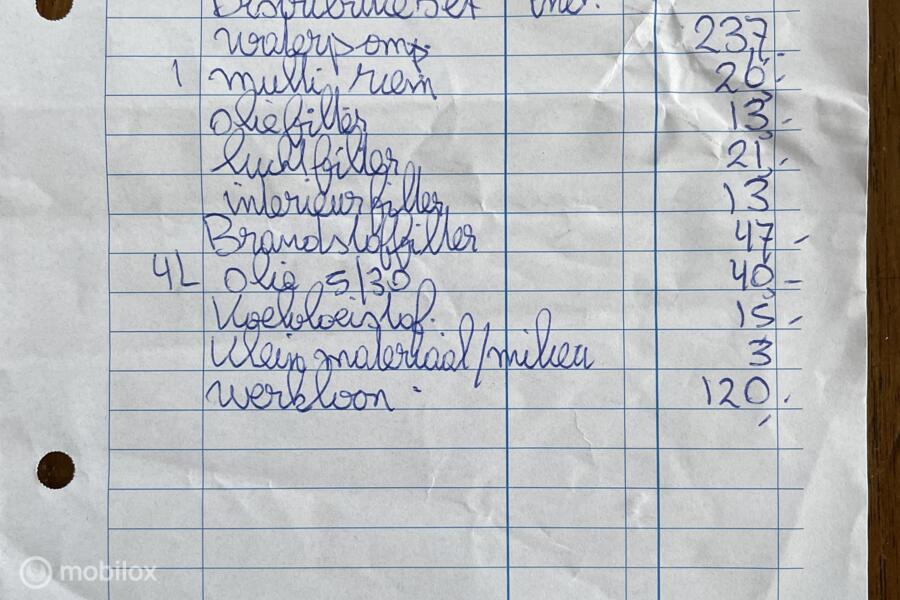 Distributieset inc.
waterpomp 237,-
1 multi riem 26,-
oliefilter 13,-
luchtfilter 21,-
interieurfilter 13
Brandstoffilter 47,-
4L olie 5/30 40,-
Koelvloeistof. 15,-
Klein materiaal/milieu 3
werkloon - 120,-
mobilox